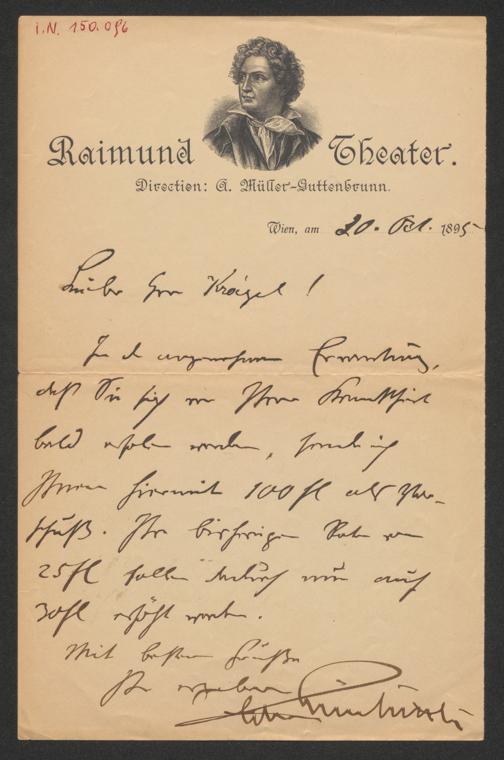 I.N. 150.096
Raimund Theater.
Direction: A. Müller-Guttenbrunn.
Wien, am 20. Okt. 1895
Lieber Herr
In der angenehmen Erwartung,
daß Sie sich von Ihrer Krankheit
bald erholen werden, sende ich
Ihnen hiermit 100 fl als Vor-
schuß. Ihr bisherigen Rate von
25 fl sollen dadurch nur auf
30 fl erhöht werden.
Mit besten Grüßen
Ihr ergebener